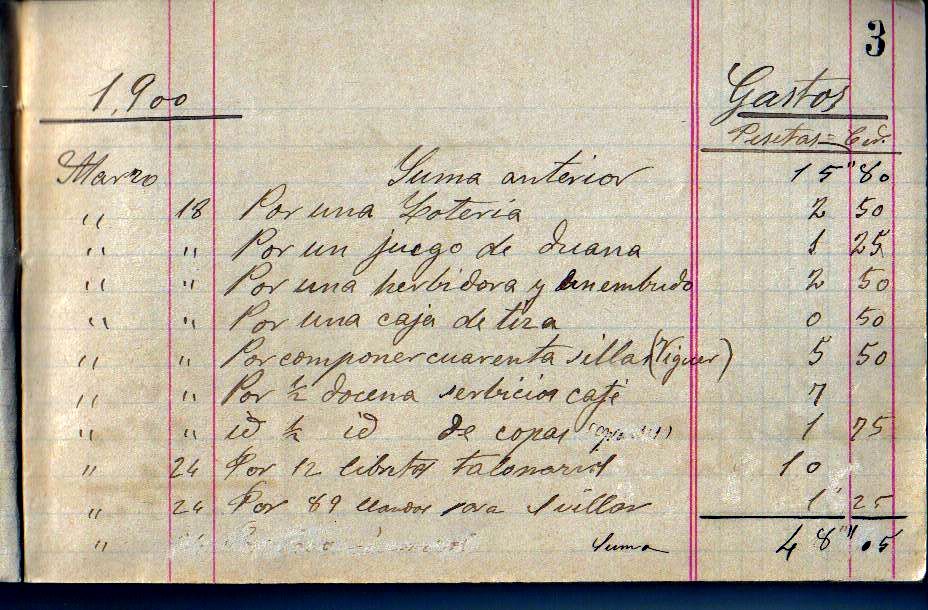 3
1,900 Gastos
Pesetas = Cén.
Marzo Suma anterior 15" 80
" 18 Por una Loteria 2 50
" " Por un juego de duana 1 25
" " Por una herbidora y un embudo 2 50
" " Por una caja de tiza 0 50
" " Por componer cuarenta sillas (Viguer) 5 50
" " Por ½ docena serbicios café 7
" " id ½ id de copas 1 75
" 24 Por 12 libretas talonarios 10
" 24 Por 89 para sillas 1 25
" Suma 48"" 05